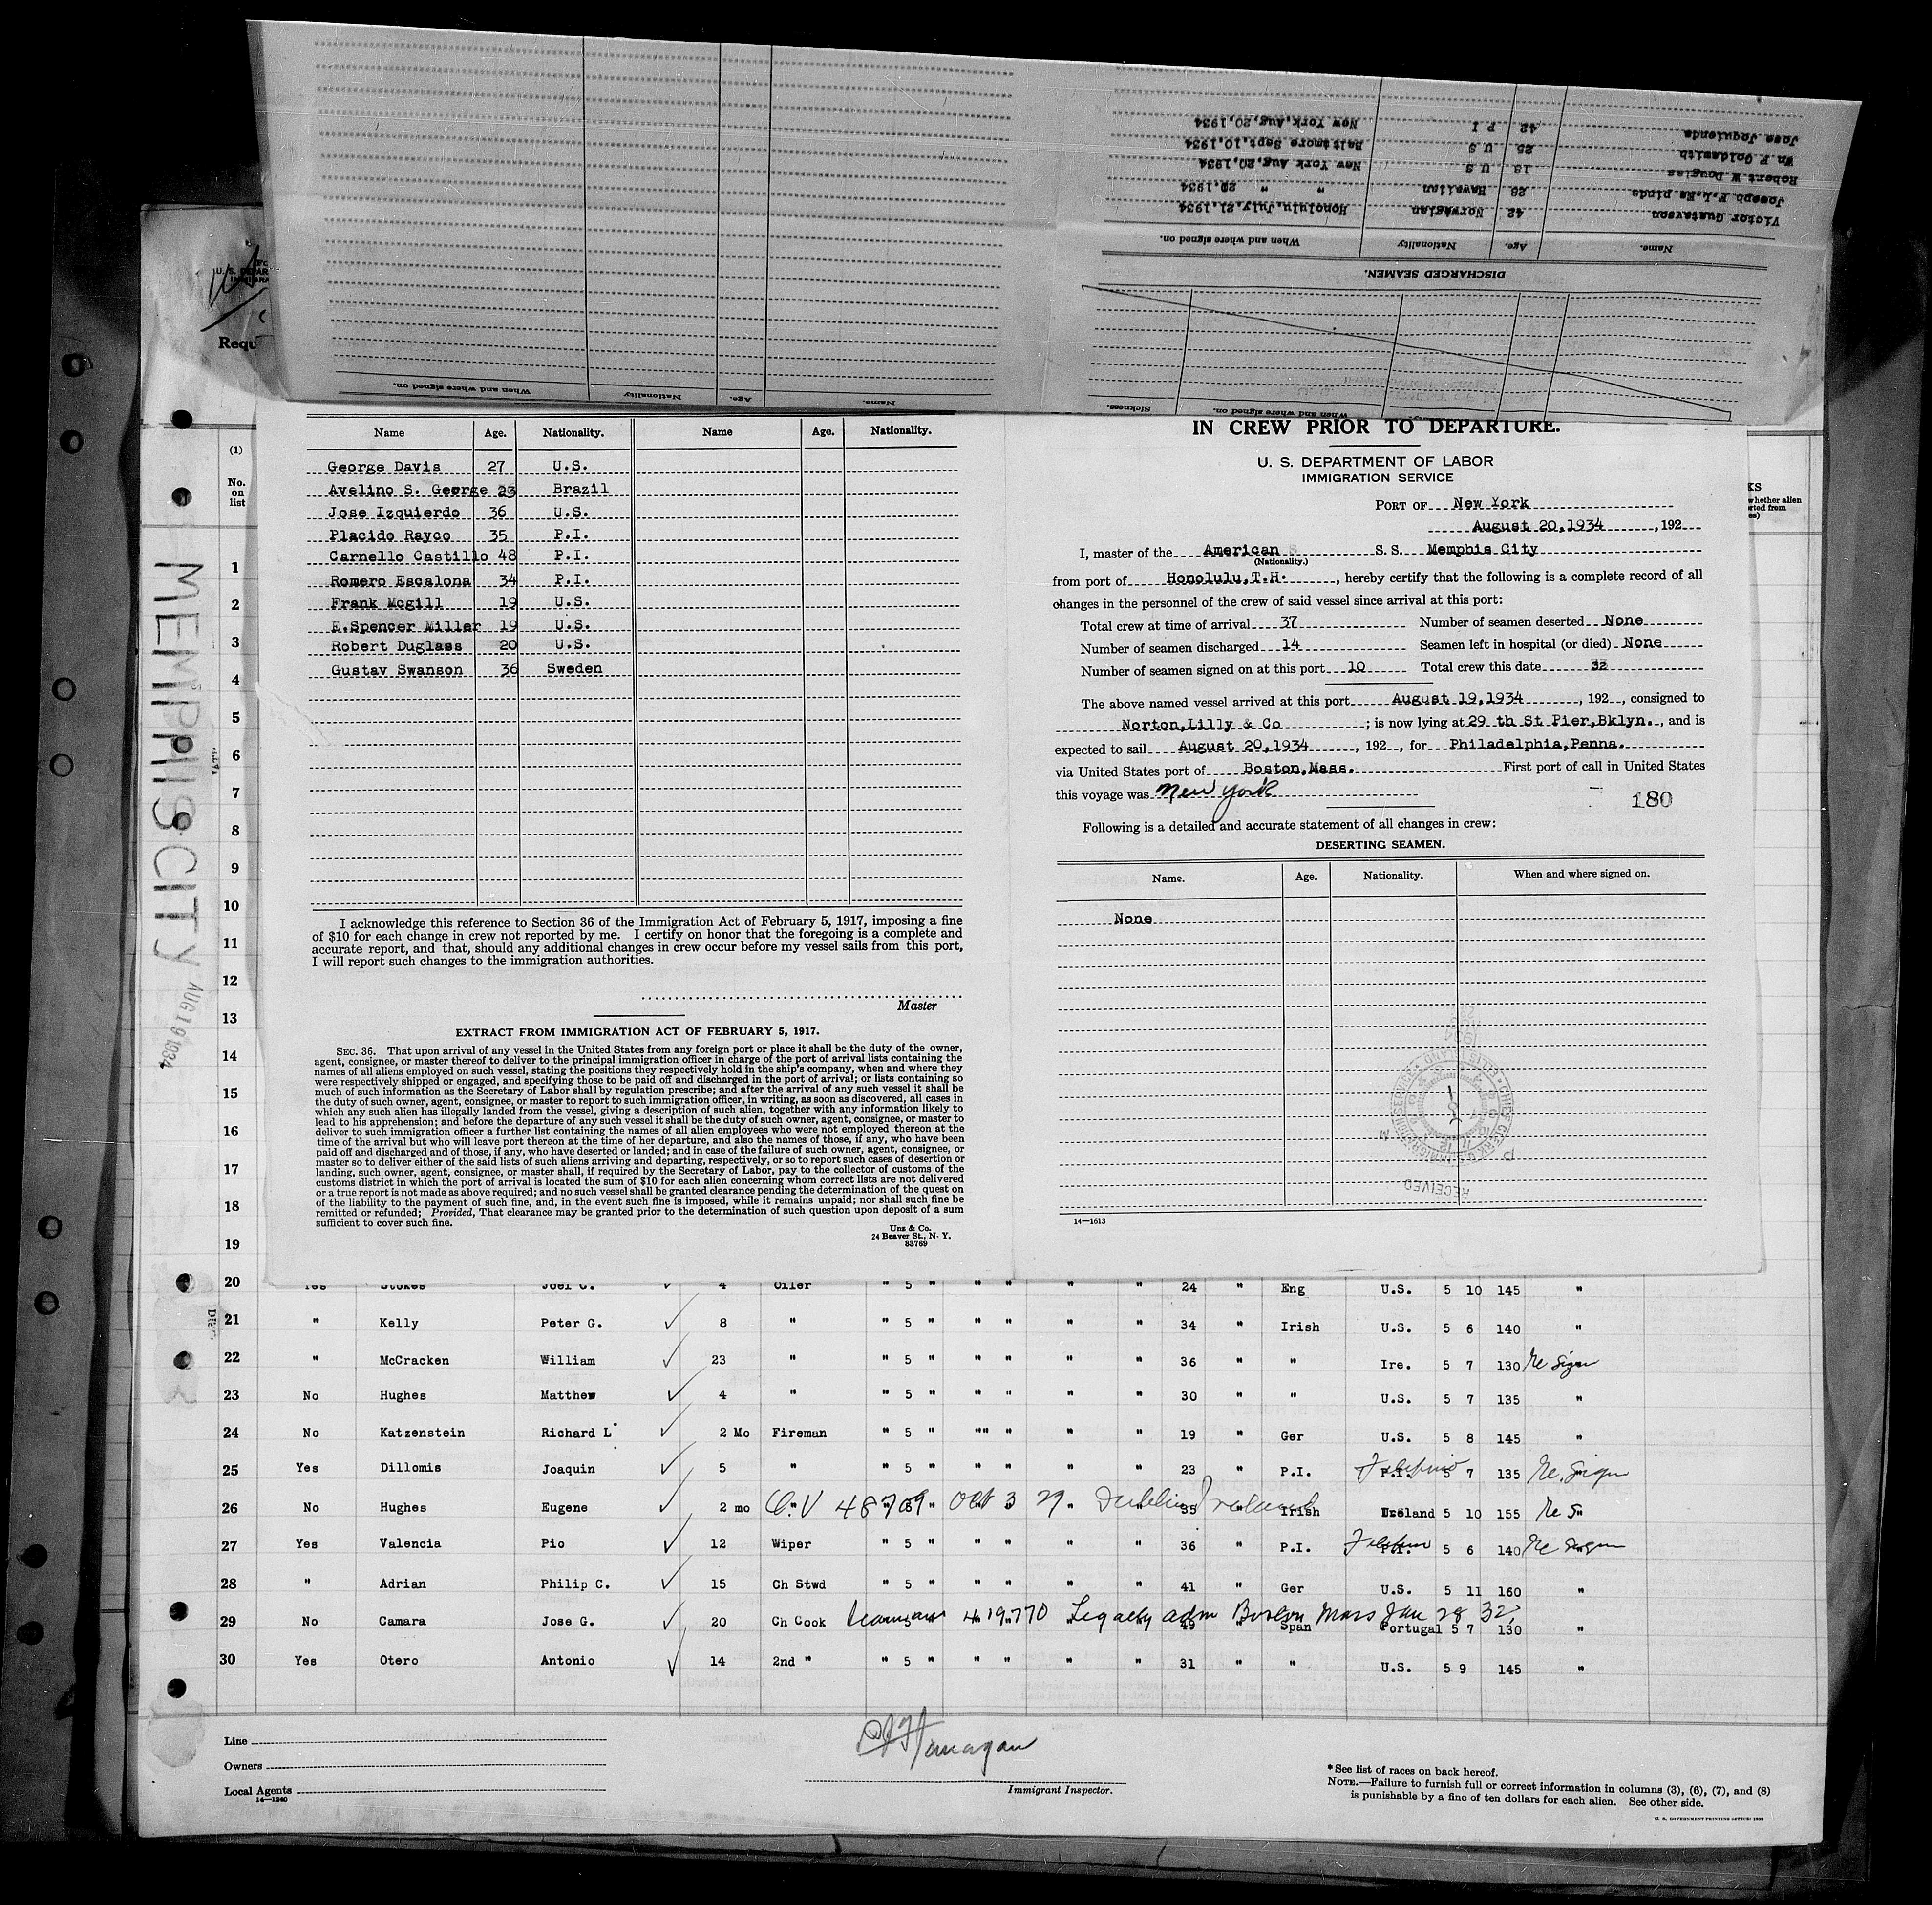 Name. Age. Nationality. When and where signed on.
Jose Joquienda 42 P I New York, Aug, 20, 1934
Wm F Goldsmith 25 U S Baltimore Sept, 10, 1934
Robert W Douglas 18 U S New York Aug, 20, 1934
Joseph F.L. pinda 26 Hawaiian " " 1934
Victor Gustavson 42 Norwegian Honolulu, July, 21, 1934
Name. Age. Nationality When and where signed on.
DISCHARGED SEAMEN.
When and where signed on. Sickness.
U. S. DEPAR
Requ
MEMPHIS CITY AUG 19 1934
(1)
No. on list
Name Age. Nationality. Name Age. Nationality.
George Davis 27 U.S.
Avelino S. George 23 Brazil
Jose Izquierdo 36 U.S.
Placido Rayco 35 P.I.
Carnello Castillo 48 P.I.
Romero Escalona 34 P.I.
Frank Mcgill 19 U.S.
E.Spencer Miller 19 U.S.
Robert Duglass 20 U.S.
Gustav Swanson 36 Sweden
I acknowledge this reference to Section 36 of the Immigration Act of February 5, 1917, imposing a fine
of $10 for each change in crew not reported by me. I certify on honor that the foregoing is a complete and
accurate report, and that, should any additional changes in crew occur before my vessel sails from this port,
I will report such changes to the immigration authorities.
Master
EXTRACT FROM IMMIGRATION ACT OF FEBRUARY 5, 1917.
SEC. 36. That upon arrival of any vessel in the United States from any foreign port or place it shall be the duty of the owner,
agent, consignee, or master thereof to deliver to the principal immigration officer in charge of the port of arrival lists containing the
names of all aliens employed on such vessel, stating the positions they respectively hold in the ship's company, when and where they
were respectively shipped or engaged, and specifying those to be paid off and discharged in the port of arrival; or lists containing so
much of such information as the Secretary of Labor shall by regulation prescribe; and after the arrival of any such vessel it shall be
the duty of such owner, agent, consignee, or master to report to such immigration officer, in writing, as soon as discovered, all cases in
which any such alien has illegally landed from the vessel, giving a description of such alien, together with any information likely to
lead to his apprehension; and before the departure of any such vessel it shall be the duty of such owner, agent, consignee, or master to
deliver to such immigration officer a further list containing the names of all alien employees who were not employed thereon at the
time of the arrival but who will leave port thereon at the time of her departure, and also the names of those, if any, who have been
paid off and discharged and of those, if any, who have deserted or landed; and in case of the failure of such owner, agent, consignee, or
master so to deliver either of the said lists of such aliens arriving and departing, respectively, or so to report such cases of desertion or
landing, such owner, agent, consignee, or master shall, if required by the Secretary of Labor, pay to the collector of customs of the
customs district in which the port of arrival is located the sum of $10 for each alien concerning whom correct lists are not delivered
or a true report is not made as above required; and no such vessel shall be granted clearance pending the determination of the quest on
of the liability to the payment of such fine, and, in the event such fine is imposed, while it remains unpaid; nor shall such fine be
remitted or refunded; Provided, That clearance may be granted prior to the determination of such question upon deposit of a sum
sufficient to cover such fine.
Unz & Co.
24 Beaver St., N. Y.
33769
IN CREW PRIOR TO DEPARTURE.
U. S. DEPARTMENT OF LABOR
IMMIGRATION SERVICE
PORT OF New York
August 20,1934, 192
I, master of the American S. S. Memphis City
(Nationality.)
from port of Honolulu,T.H., hereby certify that the following is a complete record of all
changes in the personnel of the crew of said vessel since arrival at this port:
Total crew at time of arrival 37 Number of seamen deserted None
Number of seamen discharged 14 Seamen left in hospital (or died) None
Number of seamen signed on at this port 10 Total crew this date 32
The above named vessel arrived at this port August 19,1934, 192, consigned to
Norton,Lilly & Co; is now lying at 29 th St Pier,Bklyn., and is
expected to sail August 20,1934, 192, for Philadelphia,Penna.
via United States port of Boston,Mass. First port of call in United States
this voyage was New York
180
Following is a detailed and accurate statement of all changes in crew:
DESERTING SEAMEN.
Name. Age. Nationality. When and where signed on.
None
RECEIVED
14—1613
1
2
3
4
5
6
7
8
9
10
11
12
13
14
15
16
17
18
19
20 Yes Stokes Joel C. 4 Oiler " 5 " " " " " 24 " Eng U.S. 5 10 145 "
21 " Kelly Peter G. 8 " " 5 " " " " " 34 " Irish U.S. 5 6 140 "
22 " McCracken William 23 " " 5 " " " " " 36 " " Ire. 5 7 130 Re Sign
23 No Hughes Matthew 4 " " 5 " " " " " 30 " " U.S. 5 7 135 "
24 No Katzenstein Richard L 2 Mo Fireman " 5 " "" " " " 19 " Ger U.S. 5 8 145 "
25 Yes Dillomis Joaquin 5 " " 5 " " " " " 23 " P.I. P.I. Filipino 5 7 135 Re. Sign
26 No Hughes Eugene 2 mo C.V 48709 Oct 3 29 Dublin Ireland 35 Irish Ireland 5 10 155 Re S
27 Yes Valencia Pio 12 Wiper " 5 " " " " " 36 " P.I. P.I. 5 6 140 Re Sign
28 " Adrian Philip C. 15 Ch Stwd " 5 " " " " " 41 " Ger U.S. 5 11 160 "
29 No Camara Jose G. 20 Ch Cook 419770 Legally adm Boston Mass Jan 28 32 49 " Span Portugal 5 7 130 "
30 Yes Otero Antonio 14 2nd " " 5 " " " " " 31 " " U.S. 5 9 145 "
Line
Owners
Local Agents
14—1240
Immigrant Inspector.
*See list of races on back hereof.
NOTE.—Failure to furnish full or correct information in columns (3), (6), (7), and (8)
is punishable by a fine of ten dollars for each alien. See other side.
U. S. GOVERNMENT PRINTING OFFICE: 1932